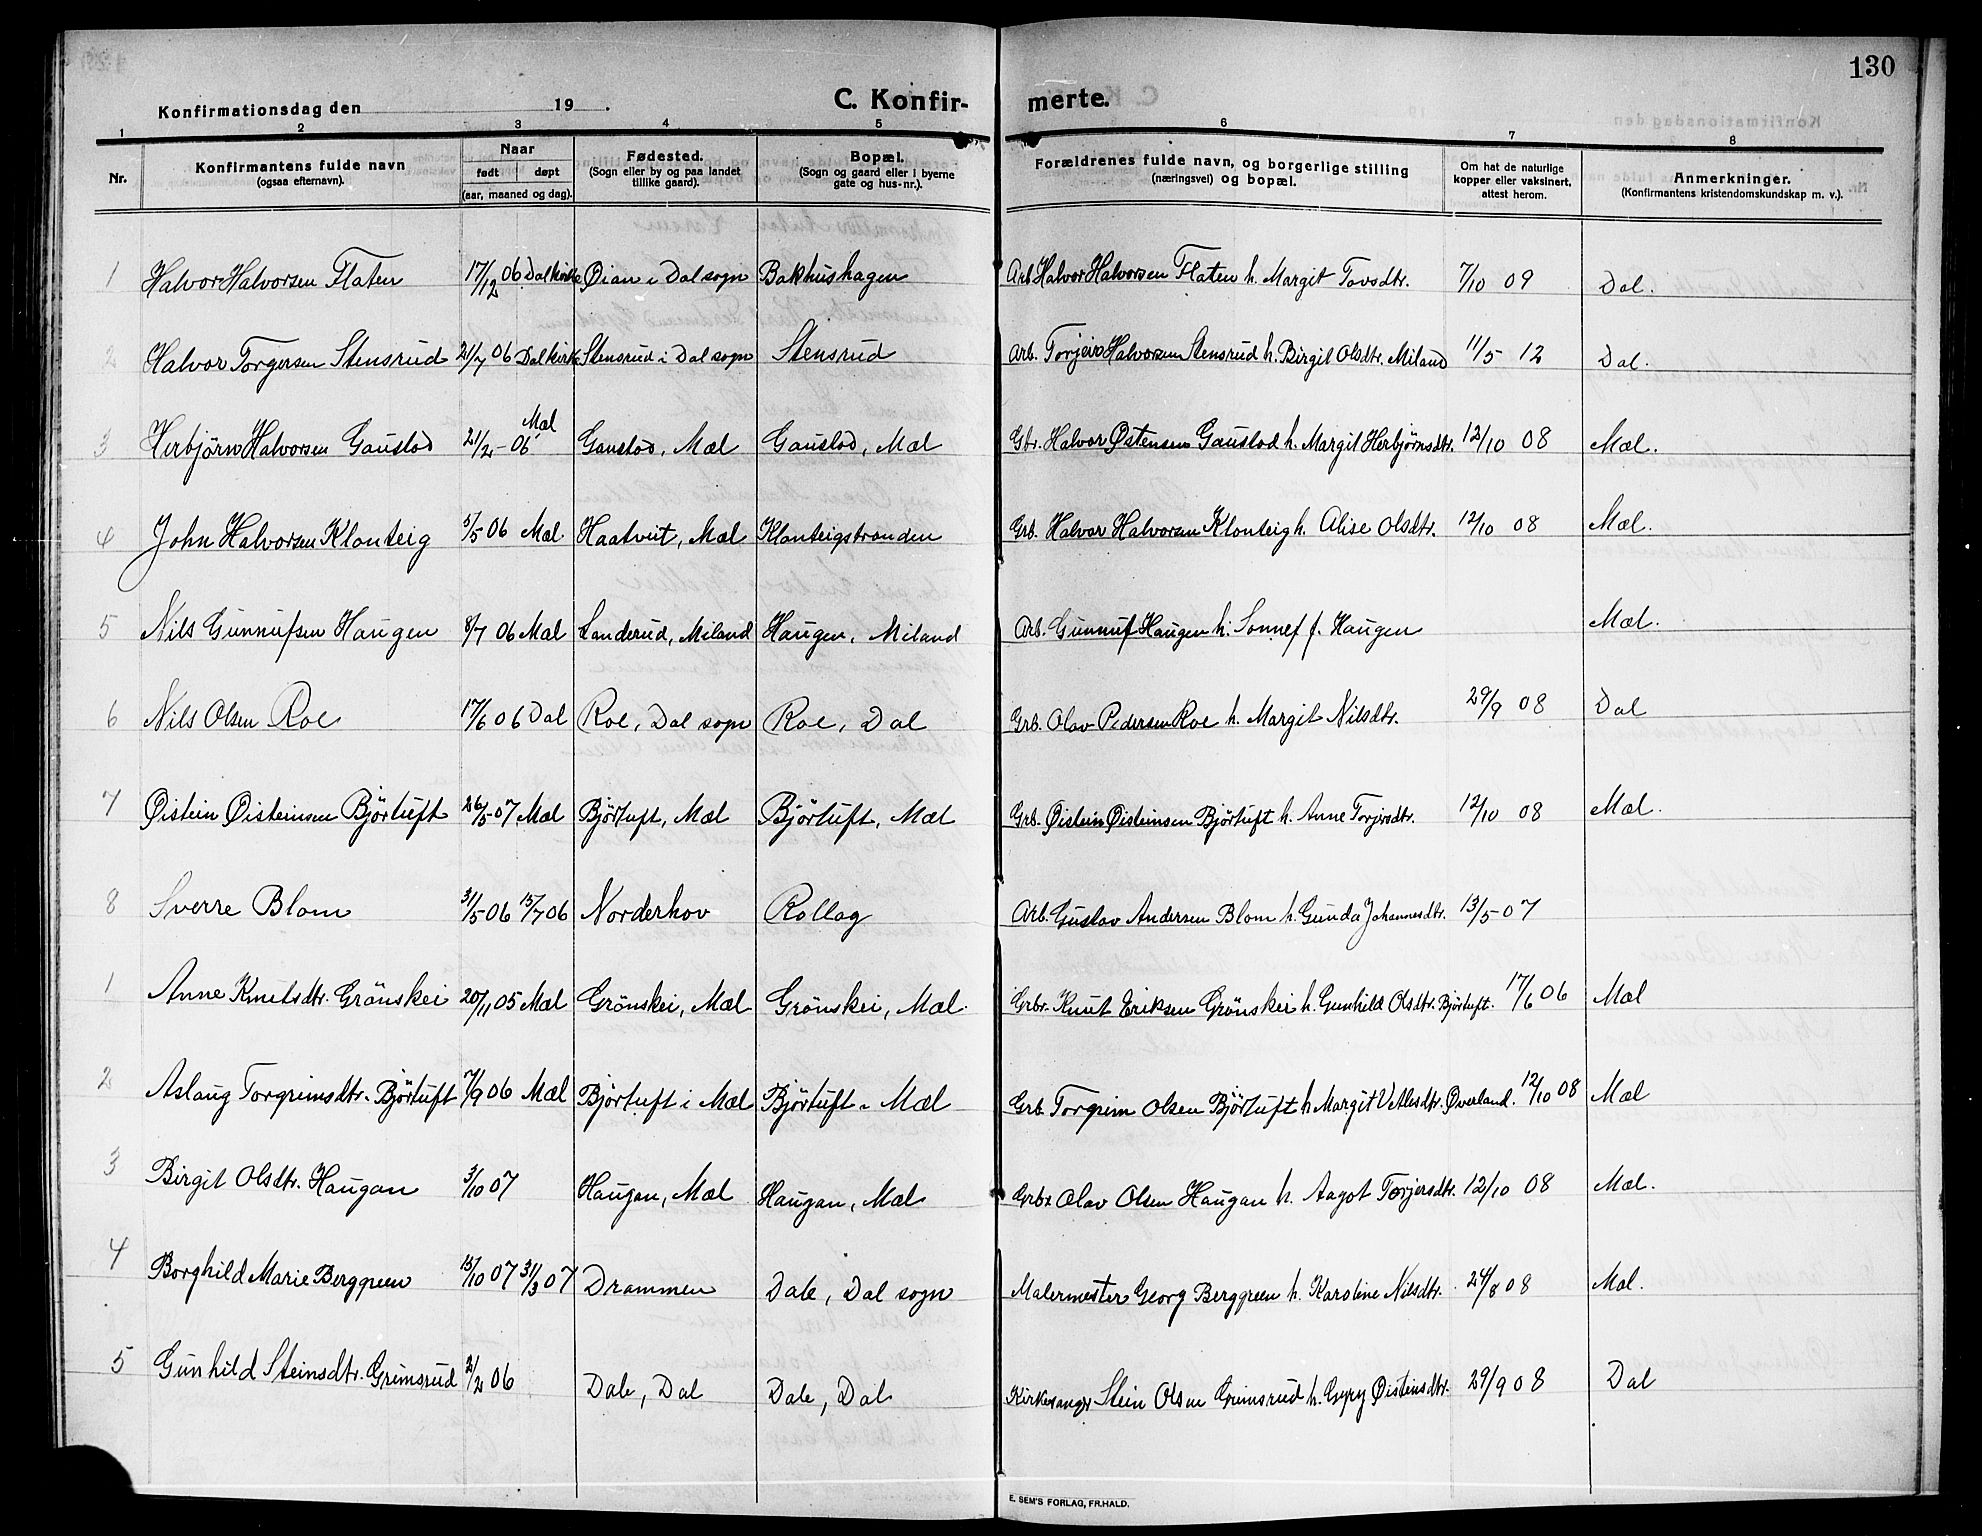 130
Konfirmationsdag den 19 . C. Konfir- merte.
1 2 3 4 5 6 7 8
Nr. Konfirmantens fulde navn (ogsaa efternavn). Naar født døpt (aar, maaned og dag). Fødested. (Sogn eller by og paa landet tillike gaard). Bopæl. (Sogn og gaard eller i byerne gate og hus-nr.). Forældrenes fulde navn, og borgerlige stilling (næringsvei) og bopæl. Om hat de naturlige kopper eller vaksinert, attest herom. Anmerkninger. (Konfirmantens kristendomskundskap m. v.).
1 Halvor Halvorsen Flaten 17/12 06 Dal kirke Øian i Dal sogn Bakhushagen Arb. Halvor Halvorsen Flaten h. Margit Tovsdtr. 7/10 09 Dal.
2 Halvor Torgersen Stensrud 21/7 06 Dal kirke Stensrud i Dal sogn Stensrud Arb. Torjeir Halvorsen Stensrud h. Birgit Olsdtr. Miland 11/5 12 Dal.
3 Herbjörn Halvorsen Gaustad 21/2 - 06 Mæl Gaustad, Mæl Gaustad, Mæl Gbr. Halvor Østensen Gaustad h. Margit Herbjörnsdtr. 12/10 08 Mæl.
4 John Halvorsen Klonteig 5/5 06 Mæl Haatveit, Mæl Klonteigstranden Grb. Halvor Halvorsen Klonteig h. Alise Olsdtr. 12/10 08 Mæl.
5 Nils Gunnufsen Haugen 8/7 06 Mæl Landerud, Miland Haugen, Miland Arb. Gunnuf Haugen h. Sonnef f. Haugen Mæl.
6 Nils Olsen Roe 17/6 06 Dal Roe, Dal sogn Roe, Dal Grb. Olav Pedersen Roe h. Margit Nilsdtr. 29/9 08 Dal
7 Øistein Øisteinsen Björtuft 26/5 07 Mæl Björtuft, Mæl Björtuft, Mæl Grb. Øistein Øisteinsen Björtuft h. Anne Torjersdtr. 12/10 08 Mæl.
8 Sverre Blom 31/5 06 15/7 06 Norderhov Rollag Arb. Gustav Andersen Blom h. Gunda Johannesdtr. 13/5 - 07
1 Anne Knutsdtr. Grönskei 20/11 05 Mæl Grönskei, Mæl Grönskei, Mæl. Grbr. Knut Eriksen Grönskei h. Gunhild Olsdtr. Björtuft. 17/6 06 Mæl
2 Aslaug Torgrimsdtr. Björtuft 7/9 06 Mæl Björtuft i Mæl Björtuft i Mæl Grb. Torgrim Olsen Björtuft h Margit Vetlesdtr. Øverland. 12/10 08 Mæl
3 Birgit Olsdtr. Haugan 3/10 07 Haugan, Mæl Haugan, Mæl Grbr. Olav Olsen Haugan h. Aagot Torjersdtr. 12/10 08 Mæl.
4 Borghild Marie Berggreen 15/10 07 31/3 07 Drammen Dale, Dal sogn Malermester Georg Berggreen h. Karoline Nilsdtr. 24/8 08 Mæl.
5 Gunhild Steinsdtr. Grimsrud 2/2 06 Dale, Dal Dale, Dal Kirkesanger Stein Olsen Grimsrud h. Gyry Øisteinsdtr. 29/9 08 Dal
E. SEM'S FORLAG, FR.HALD.